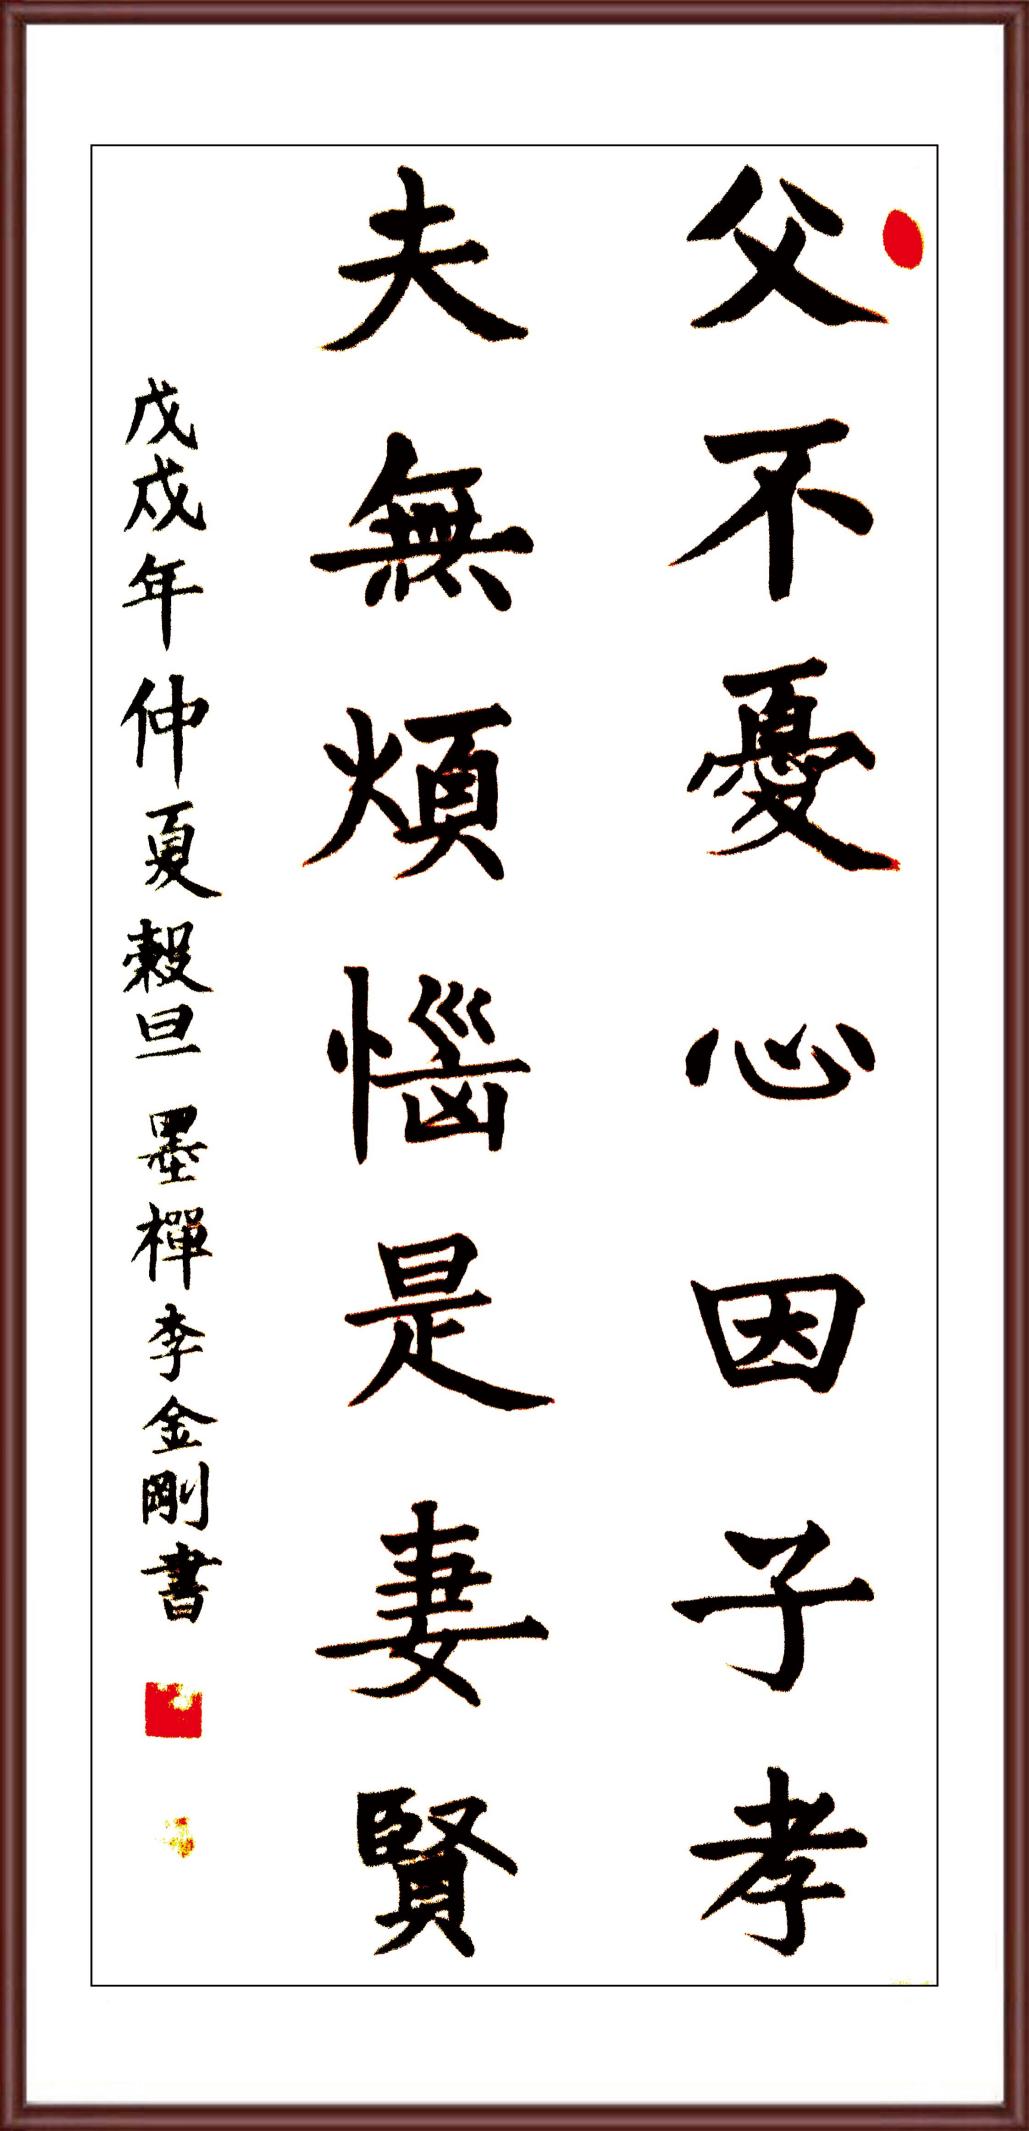 父不憂心因子孝
夫無煩惱是妻賢
戊戌年仲夏穀旦墨禪李金剛書